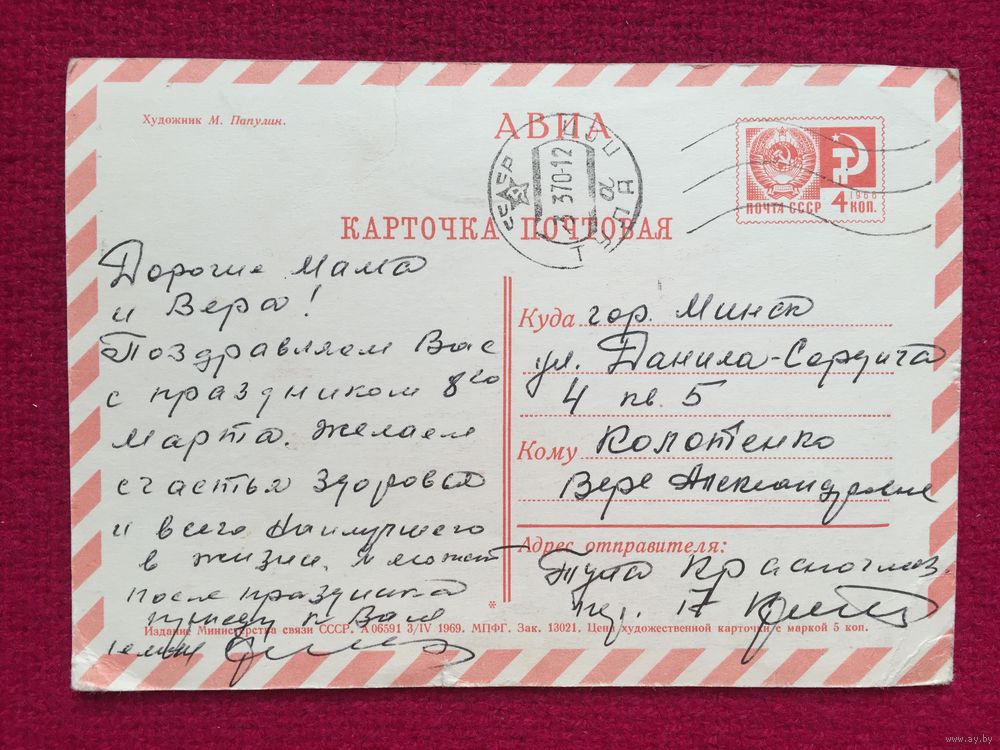 Художник М. Папулин.
АВИА
СССР
3 370-12
ТУЛА
ПОЧТА СССР
1966
4 КОП.
КАРТОЧКА ПОЧТОВАЯ
Дорогие Мама
и Вера!
Поздравляем Вас
с праздником 8го
Марта. Желаем
счастья здоровья
и всего наилучшего
в жизни. Я может
после праздника
приеду к Вам
Куда гор. Минск
ул. Данила-Сердича
4 кв. 5
Кому Колотенко
Вере Александровне
Адрес отправителя:
Тула Красноглаз.
Издание Министерства связи СССР. А 06591 3/IV 1969. МПФГ. Зак. 13021. Цена художественной карточки с маркой 5 коп.
www.ay.by